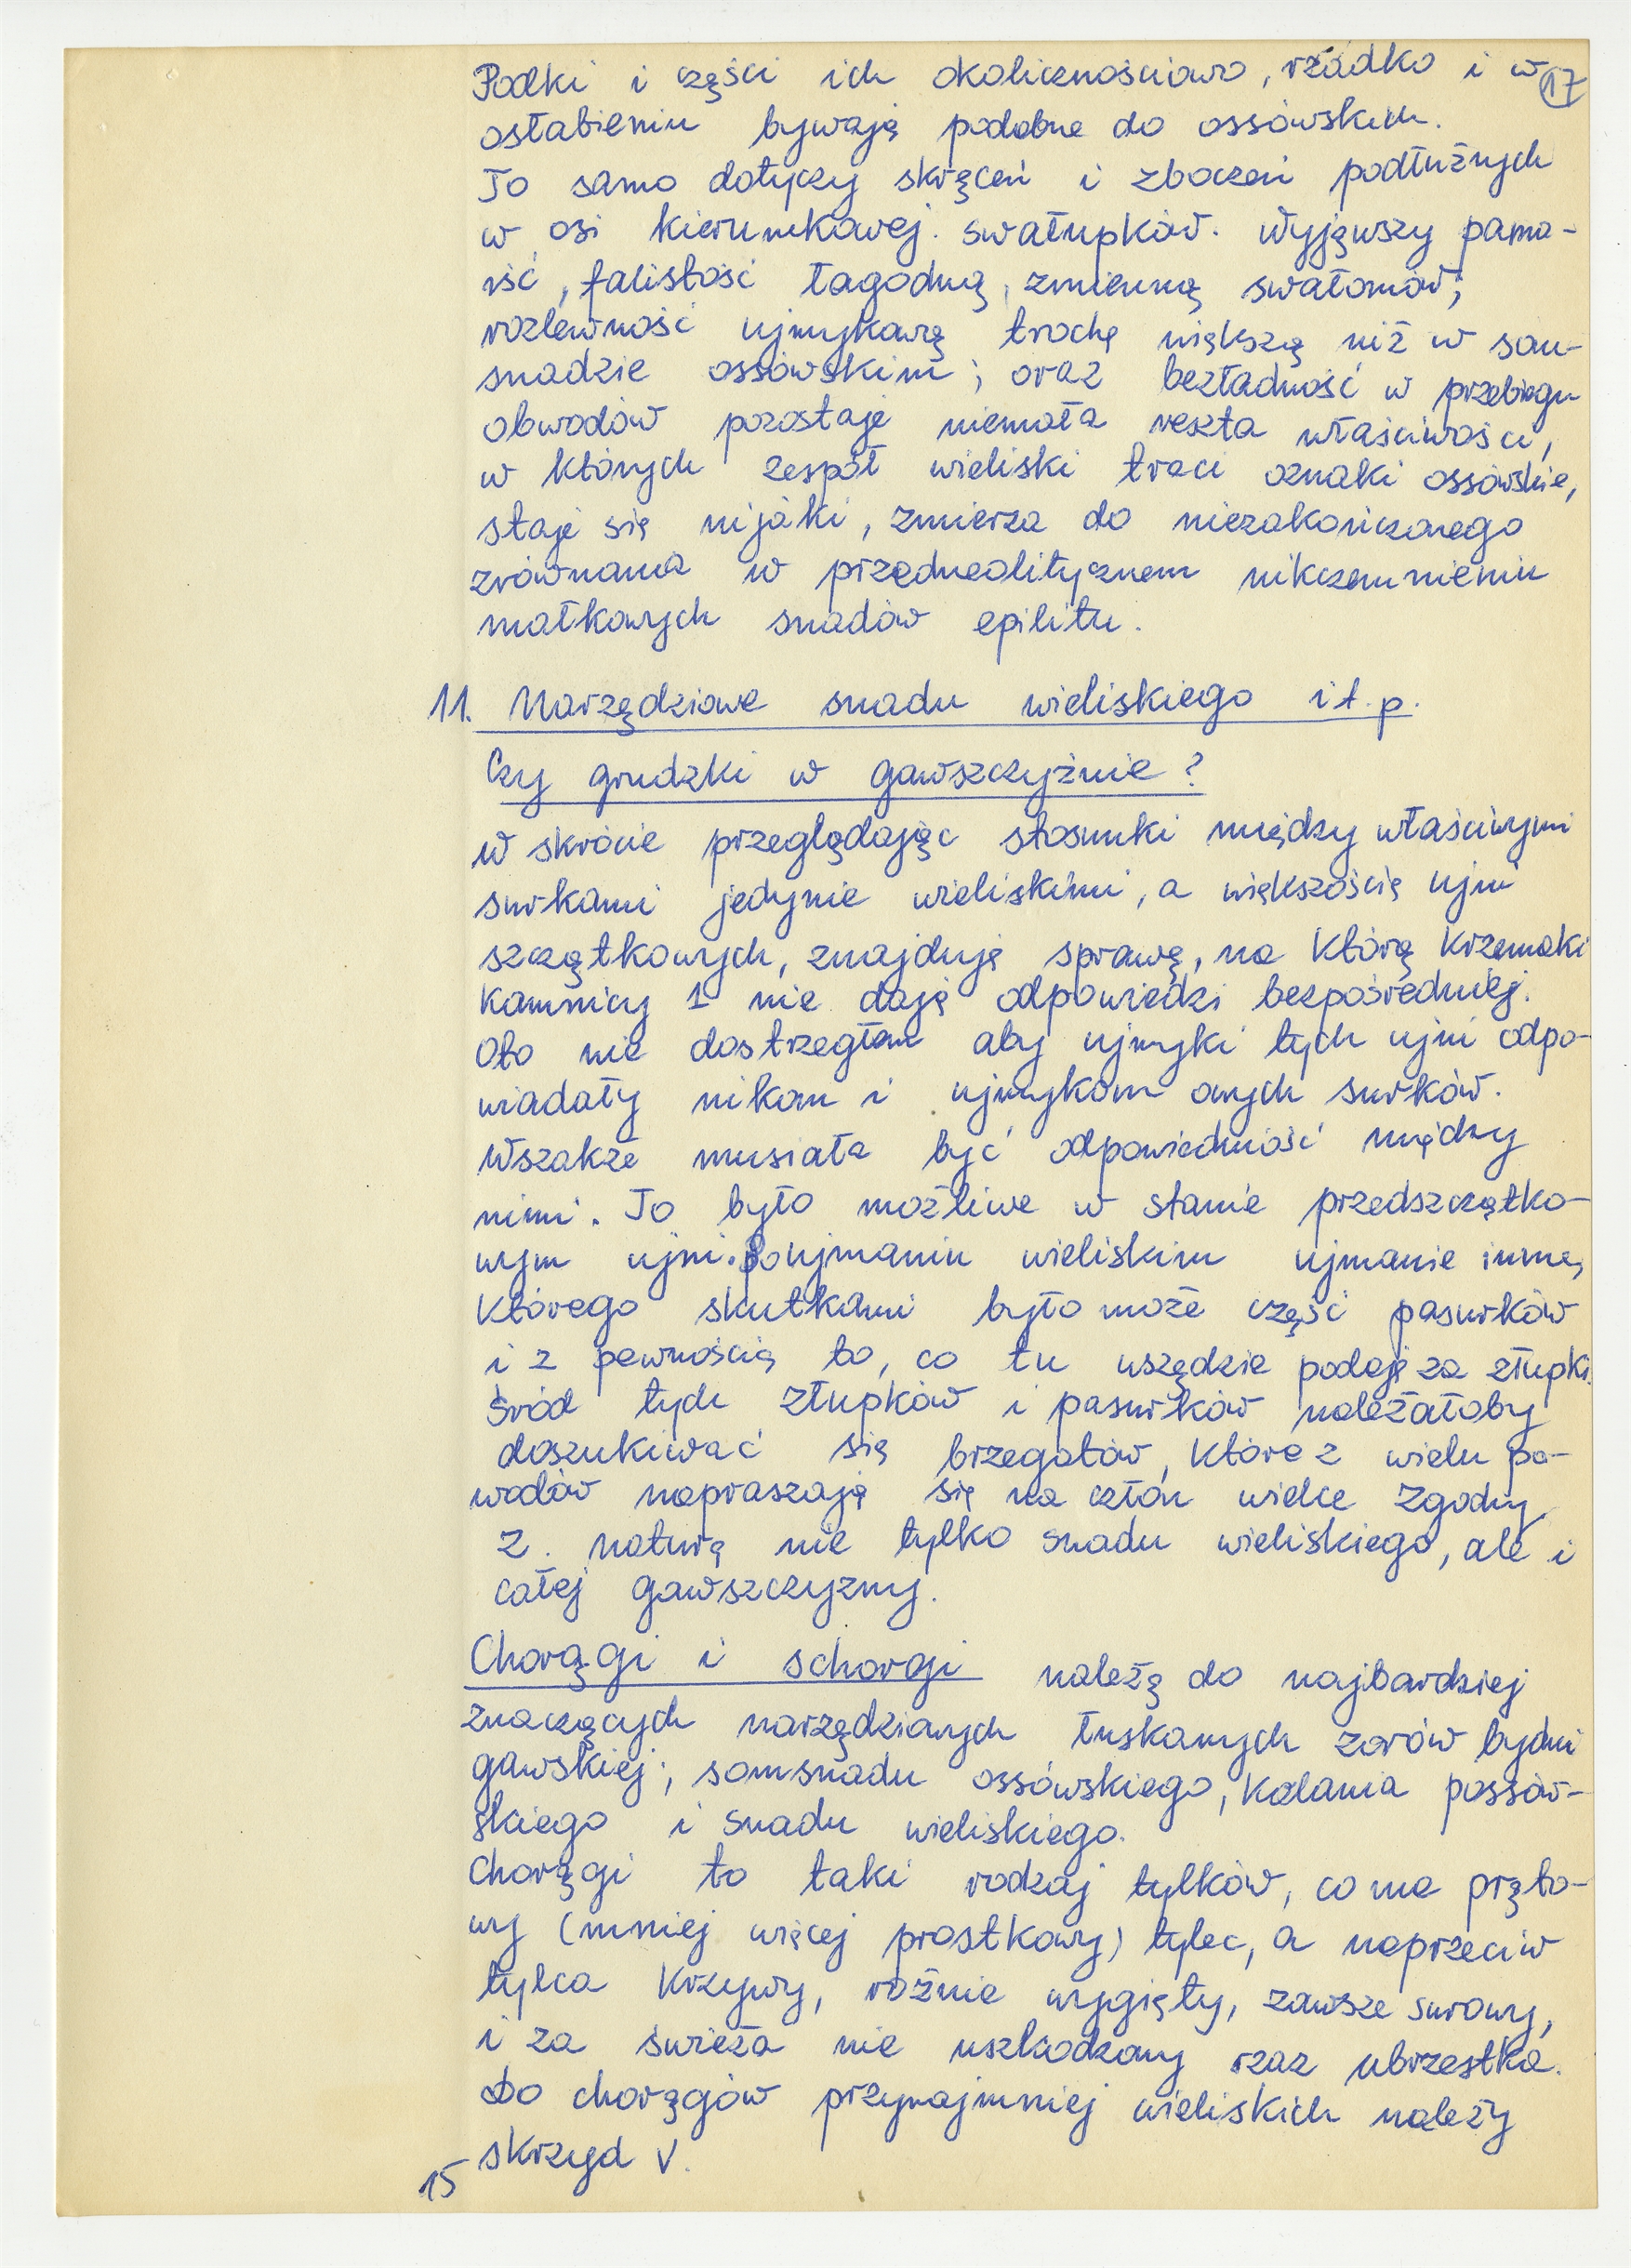 Podki i części ich okolicznościowo, rzadko i w 17
osłabieniu bywają podobne do ossówskich.
To samo dotyczy skręceń i zboczeń podłużnych
w osi kierunkowej swałupków. Wyjąwszy pamo-
iść, falistość łagodną, zmienną swałoniów;
rozlewność ujmykawą trochę większą niż w som-
snadzie ossówskim; oraz bezładność w przebiegu
obwodów pozostaje niemała reszta właściwości,
w których zespół wieliski traci oznaki ossówskie,
staje się nijaki, zmierza do niezakończonego
zrównania w przedneolitycznem nikczemnieniu
małkowych snadów epilitu.
11. Narzędziowe snadu wieliskiego i t. p.
Czy grudzki w gawszczyźnie?
W skrócie przeglądając stosunki między właściwymi
surkami jedynie wieliskimi, a większością ujni
szczątkowych, znajduję sprawę, na którą krzemaki
kamnicy 1 nie dają odpowiedzi bezpośredniej.
Oto nie dostrzegłem aby ujmyki tych ujni odpo-
wiadały nikom i ujmykom onych surków.
Wszakże musiała być odpowiedniość między
nimi. To było możliwe w stanie przedszczątko-
wym ujni. Po ujmaniu wieliskim ujmanie inne,
którego skutkami było może część pasurków
i z pewnością to, co tu wszędzie podaję za złupki.
Śród tych złupków i pasurków należałoby
doszukiwać się brzegatów, które z wielu po-
wodów napraszają się na człon wielce zgodny
z naturą nie tylko snadu wieliskiego, ale i
całej gawszczyzny.
Chorągi i schorgi należą do najbardziej
znaczących narzędziowych łuskanych zorów bydni
gawskiej; somsnadu ossówskiego, kalania possów-
skiego i snadu wieliskiego.
Chorągi to taki rodzaj tylków, co ma pręto-
wy (mniej więcej prostkowy) tylec, a naprzeciw
tylca krzywy, różnie wygięty, zawsze surowy,
i za świeża nie uszkodzony rzaz ubrzestka.
Do chorągów przynajmniej wieliskich należy
skrzyd V.
15